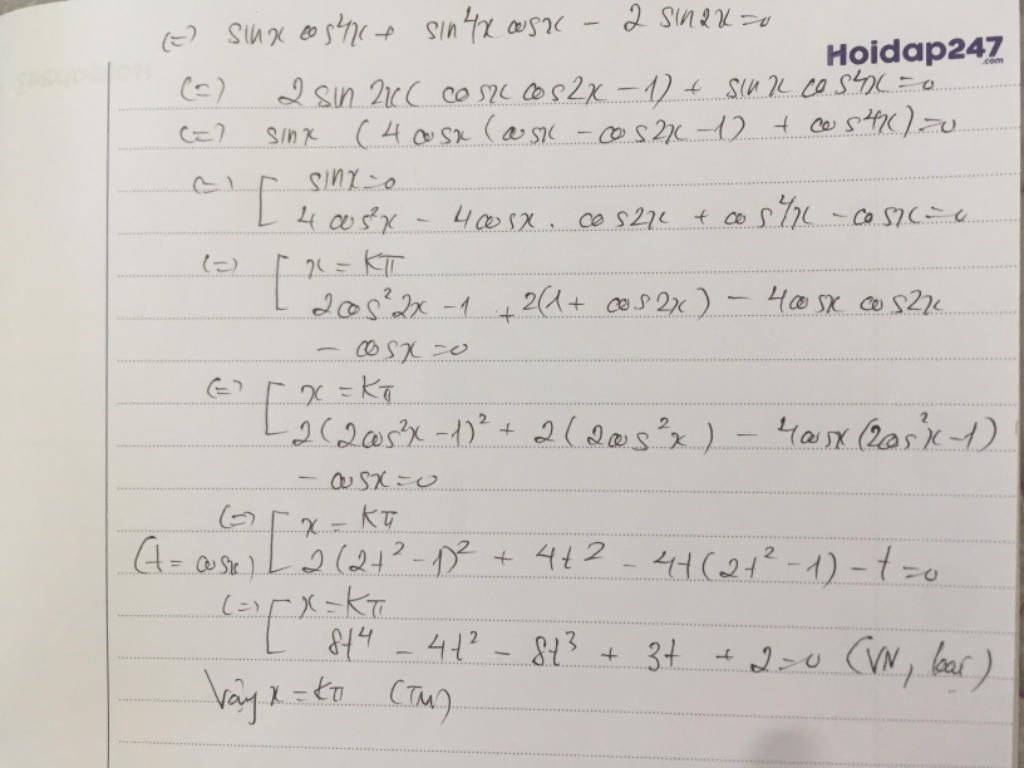 (=) sinx cos4x + sin4x cosx - 2 sin2x=0
Hoidap247
.com
(=) 2 sin 2x( cosx cos2x - 1) + sinx cos4x=0
(=) sinx (4 cosx (cosx - cos2x - 1) + cos4x)=0
(=) [ sinx=0
4 cos²x - 4 cosx . cos2x + cos4x - cosx=0
(=) [ x = Kπ
2cos²2x - 1 + 2(1 + cos2x) - 4cosx cos2x
- cosx=0
(=) [ x = Kπ
2(2cos²x - 1)² + 2(2cos²x) - 4cosx (2cos²x - 1)
- cosx=0
(=) [ x = Kπ
(t = cosx) 2(2t² - 1)² + 4t² - 4t(2t² - 1) - t=0
(=) [ x = Kπ
8t⁴ - 4t² - 8t³ + 3t + 2=0 (VN, loại)
Vậy x = Kπ (TM)